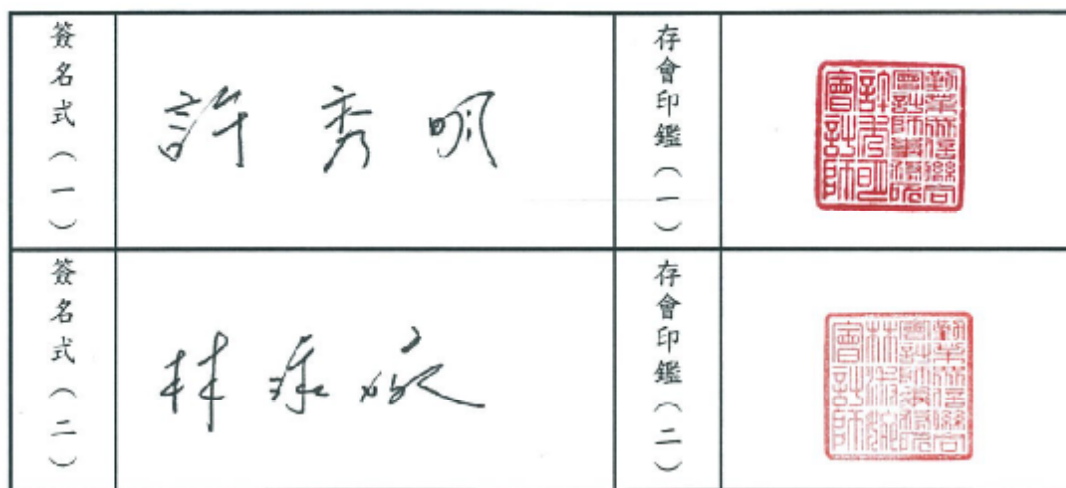 簽名式(一)
許秀明
存會印鑑(一)
勤業眾信聯合
會計師事務所
許秀明
會計師
簽名式(二)
林
存會印鑑(二)
勤業眾信聯合
會計師事務所
林淑
會計師